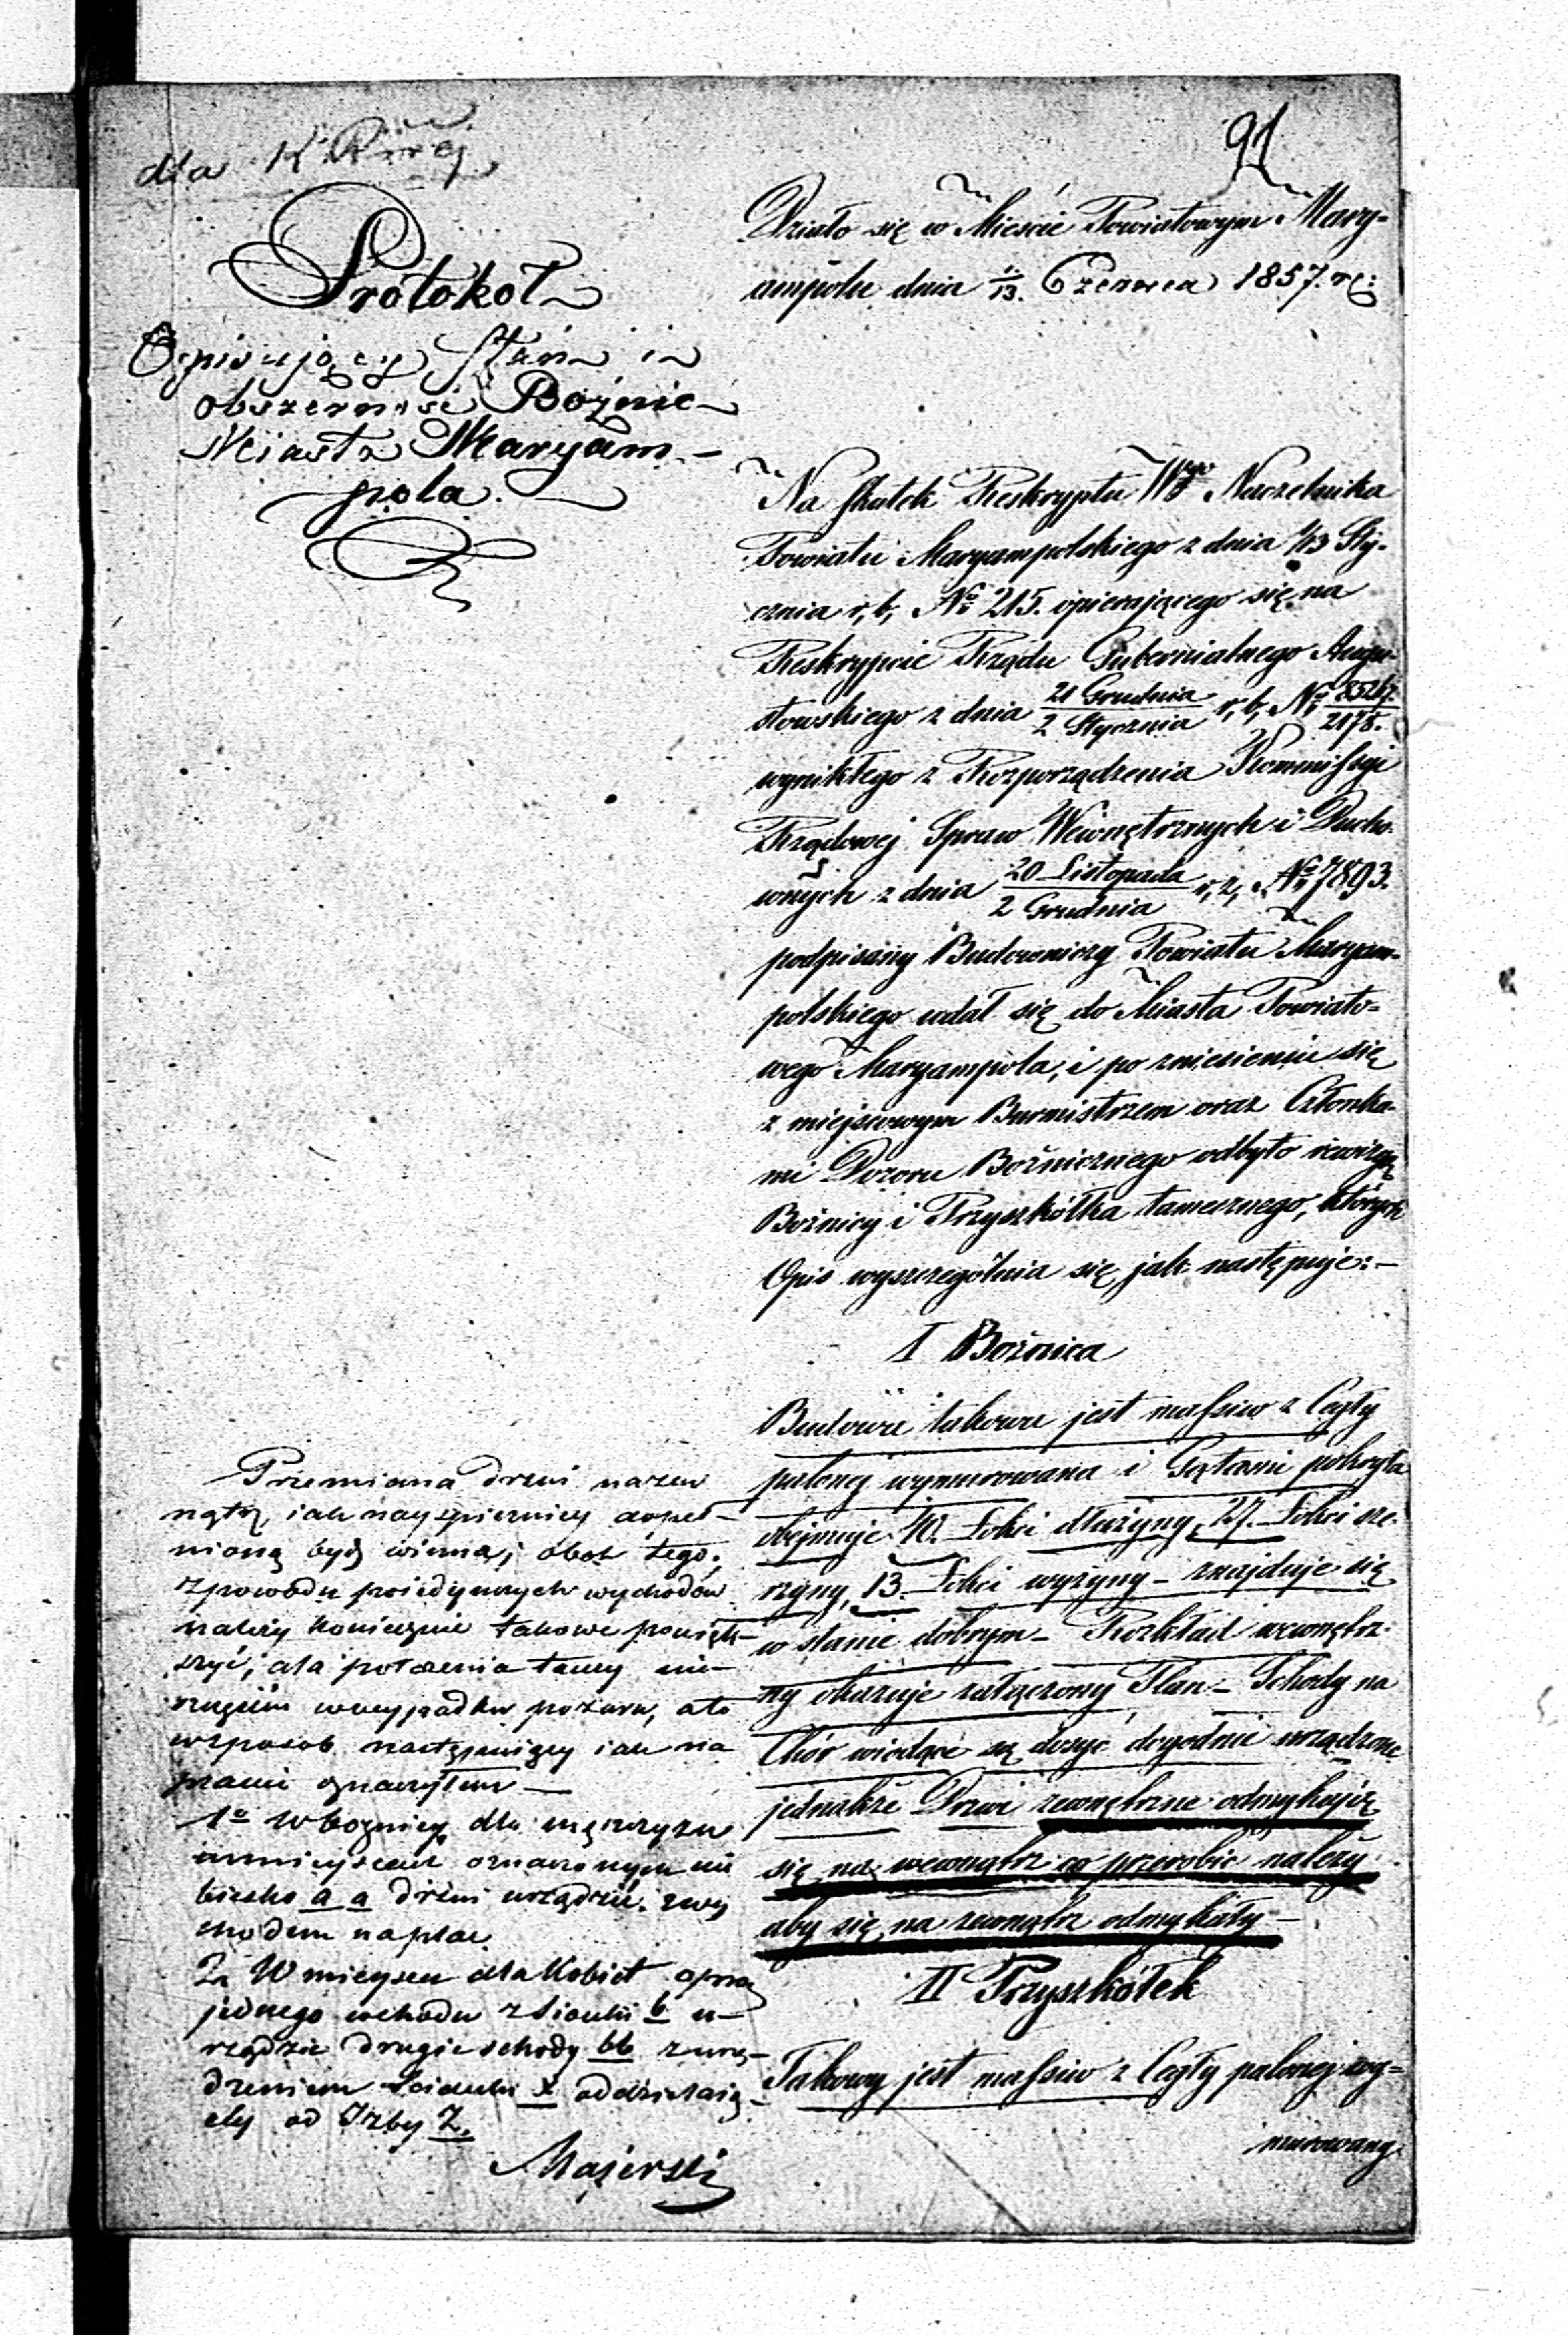 91
dla K.
Protokoł
Opisujący Stan i
obszerność Bóżnic
Miasta Maryam-
pola.
Działo się w Mieście Powiatowym Mary-
ampolu dnia 1/13. Czerwca 1857. r:
Na skutek Reskryptu Wgo Naczelnika
Powiatu Maryampolskiego z dnia 1/13 Sty-
cznia r, b, No 215. opierającego się na
Reskrypcie Rządu Gubernialnego Augu-
stowskiego z dnia 21 Grudnia/2 Stycznia r, b, No 85267./2178.
wynikłego z Rozporządzenia Kommissyi
Rządowej Spraw Wewnętrznych i Ducho-
wnych z dnia 20 Listopada/2 Grudnia r, z, No 7893.
podpisany Budowniczy Powiatu Maryam-
polskiego udał się do Miasta Powiato-
wego Maryampola, i po zniesieniu się
z miejscowym Burmistrzem oraz Członka-
mi Dozoru Bóżniczego odbyto rewizyą
Bożnicy i Przyszkółka tamecznego, których
Opis wyszczególnia się jak następuje: –
I Bożnica
Budowa takowa jest massiw z Cegły
palonej wymurowana i Gątami pokryta
obejmuje 40. Łokci dłużyny, 27. Łokci sze-
rzyny, 13. Łokci wyżyny – znajduje się
w stanie dobrym – Rozkład wewnętrz-
ny okazuje załączony Plan – Schody na
Chór wiodące są dosyć dogodnie urządzone
jednakże Drzwi zewnętrzne odmykają
się na wewnątrz co przerobić należy
aby się na zewnątrz odmykały –
II Przyszkółek
Takowy jest massiw z Cegły palonej wy-
murowany
Przemiana drzwi nazew
nątrz, iak nayspieszniey dopeł-
nioną bydź winna; obok tego,
z powodu poiedynczych wychodów
należy koniecznie takowe powięk-
szyć, dla położenia tamy nie-
szczęściom w wypadku pożaru, a to
w sposób następuiący iak na
planie oznaczyłem –
1o W bożnicy dla męszczyzn
w mieyscach oznaczonym nie
biesko a a drzwi urządzić z wy
chodem na plac
2. W mieyscu dla Kobiet oprócz
jednego wchodu z Sionki b u-
rządzić drugie schody bb z urzą-
dzeniem Scianki x oddzielaią-
cey od Izby Z.
Majerski